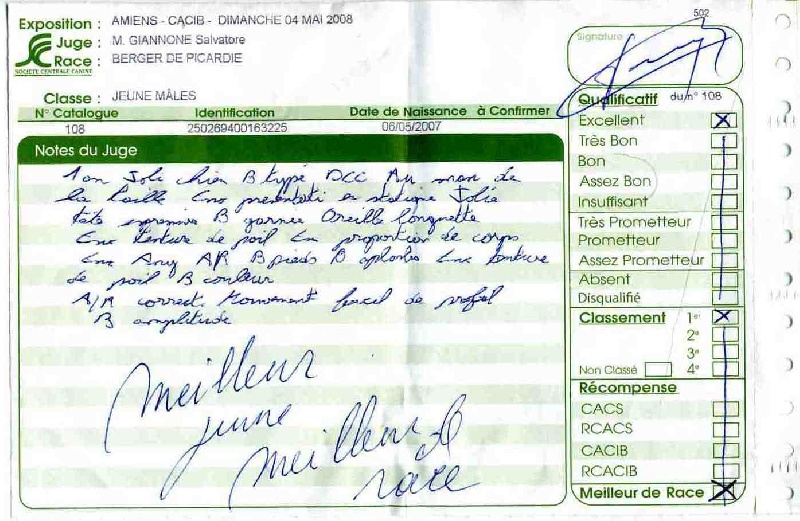 502
Exposition : AMIENS - CACIB - DIMANCHE 04 MAI 2008
Juge : M. GIANNONE Salvatore
Race : BERGER DE PICARDIE
SOCIETE CENTRALE CANINE
Classe : JEUNE MÂLES
N° Catalogue Identification Date de Naissance à Confirmer
108 250269400163225 06/05/2007
Notes du Juge
1 an Joli chien B type DCC Au max de
la taille présentati en statique Jolie
tête B garnie Oreille longuette
texture de poil proportion de corps
Ang AR B pieds B aplombs texture
de poil B couleur
A/R correct. Mouvement facil de profil
B amplitude
Meilleur
jeune
Meilleur de
race
Signature
Qualificatif du n° 108
Excellent
Très Bon
Bon
Assez Bon
Insuffisant
Très Prometteur
Prometteur
Assez Prometteur
Absent
Disqualifié
Classement 1er
2e
3e
Non Classé 4e
Récompense
CACS
RCACS
CACIB
RCACIB
Meilleur de Race